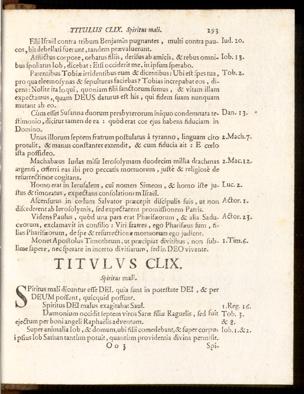 TITULUS CLIX. Spiritus mali. 293
Filii Israël contra tribum Benjamin pugnantes, multi contra pau- Iud. 20.
cos, bis debellati fuerunt, tandem prævaluerunt.
Afflictus corpore, orbatus filiis, derisus ab amicis, & rebus omni- Iob. 13.
bus spoliatus Iob, dicebat: Etsi occiderit me, in ipsum sperabo.
Parentibus Tobiæ irridentibus eum & dicentibus: Ubi est spes tua, Tob. 2.
pro qua eleemosynas & sepulturas faciebas? Tobias increpabat eos, di-
cens: Nolite ita loqui, quoniam filii sanctorum sumus, & vitam illam
expectamus, quam DEUS daturus est his, qui fidem suam nunquam
mutant ab eo.
Cùm esset Susanna duorum presbyterorum iniquo condemnata te- Dan. 13.
stimonio, dicitur tamen de ea: quòd erat cor ejus habens fiduciam in
Domino.
Unus illorum septem fratrum postulatus à tyranno, linguam cito 2.Mach.7.
protulit, & manus constanter extendit, & cum fiducia ait: E cœlo
ista possideo.
Machabæus Iudas misit Ierosolymam duodecim millia drachmas 2.Mac.12.
argenti, offerri eas ibi pro peccatis mortuorum, justè & religiosè de
resurrectione cogitans.
Homo erat in Ierusalem, cui nomen Simeon, & homo iste ju- Luc. 2.
stus & timoratus, expectans consolationem Israël.
Ascensurus in cœlum Salvator præcepit discipulis suis, ut non Actor 1.
discederent ab Ierosolymis, sed expectarent promissionem Patris.
Videns Paulus, quòd una pars erat Pharisæorum, & alia Sadu- Actor. 23.
cæorum, exclamavit in consilio: Viri fratres, ego Pharisæus sum, fi-
lius Pharisæorum, de spe & resurrectione mortuorum ego judicor.
Monet Apostolus Timotheum, ut præcipiat divitibus, non sub- 1.Tim.6.
lime sapere, nec sperare in incerto divitiarum, sed in DEO vivente.
TITVLVS CLIX.
Spiritus mali.
Spiritus mali dicuntur esse DEI, quia sunt in potestate DEI, & per
DEUM possunt, quicquid possunt.
Spiritus DEI malus exagitabat Saul. 1.Reg. 16.
Dæmonium occidit septem viros Saræ filiæ Raguelis, sed fuit Tob. 3.
ejectum per boni angeli Raphaëlis adventum. & 8.
Super animalia Iob, & domum, ubi filii comedebant, & super corpus Iob. 1.&2.
ipsius Iob Satan tantum potuit, quantum providentia divina permisit.
Oo 3 Spi-